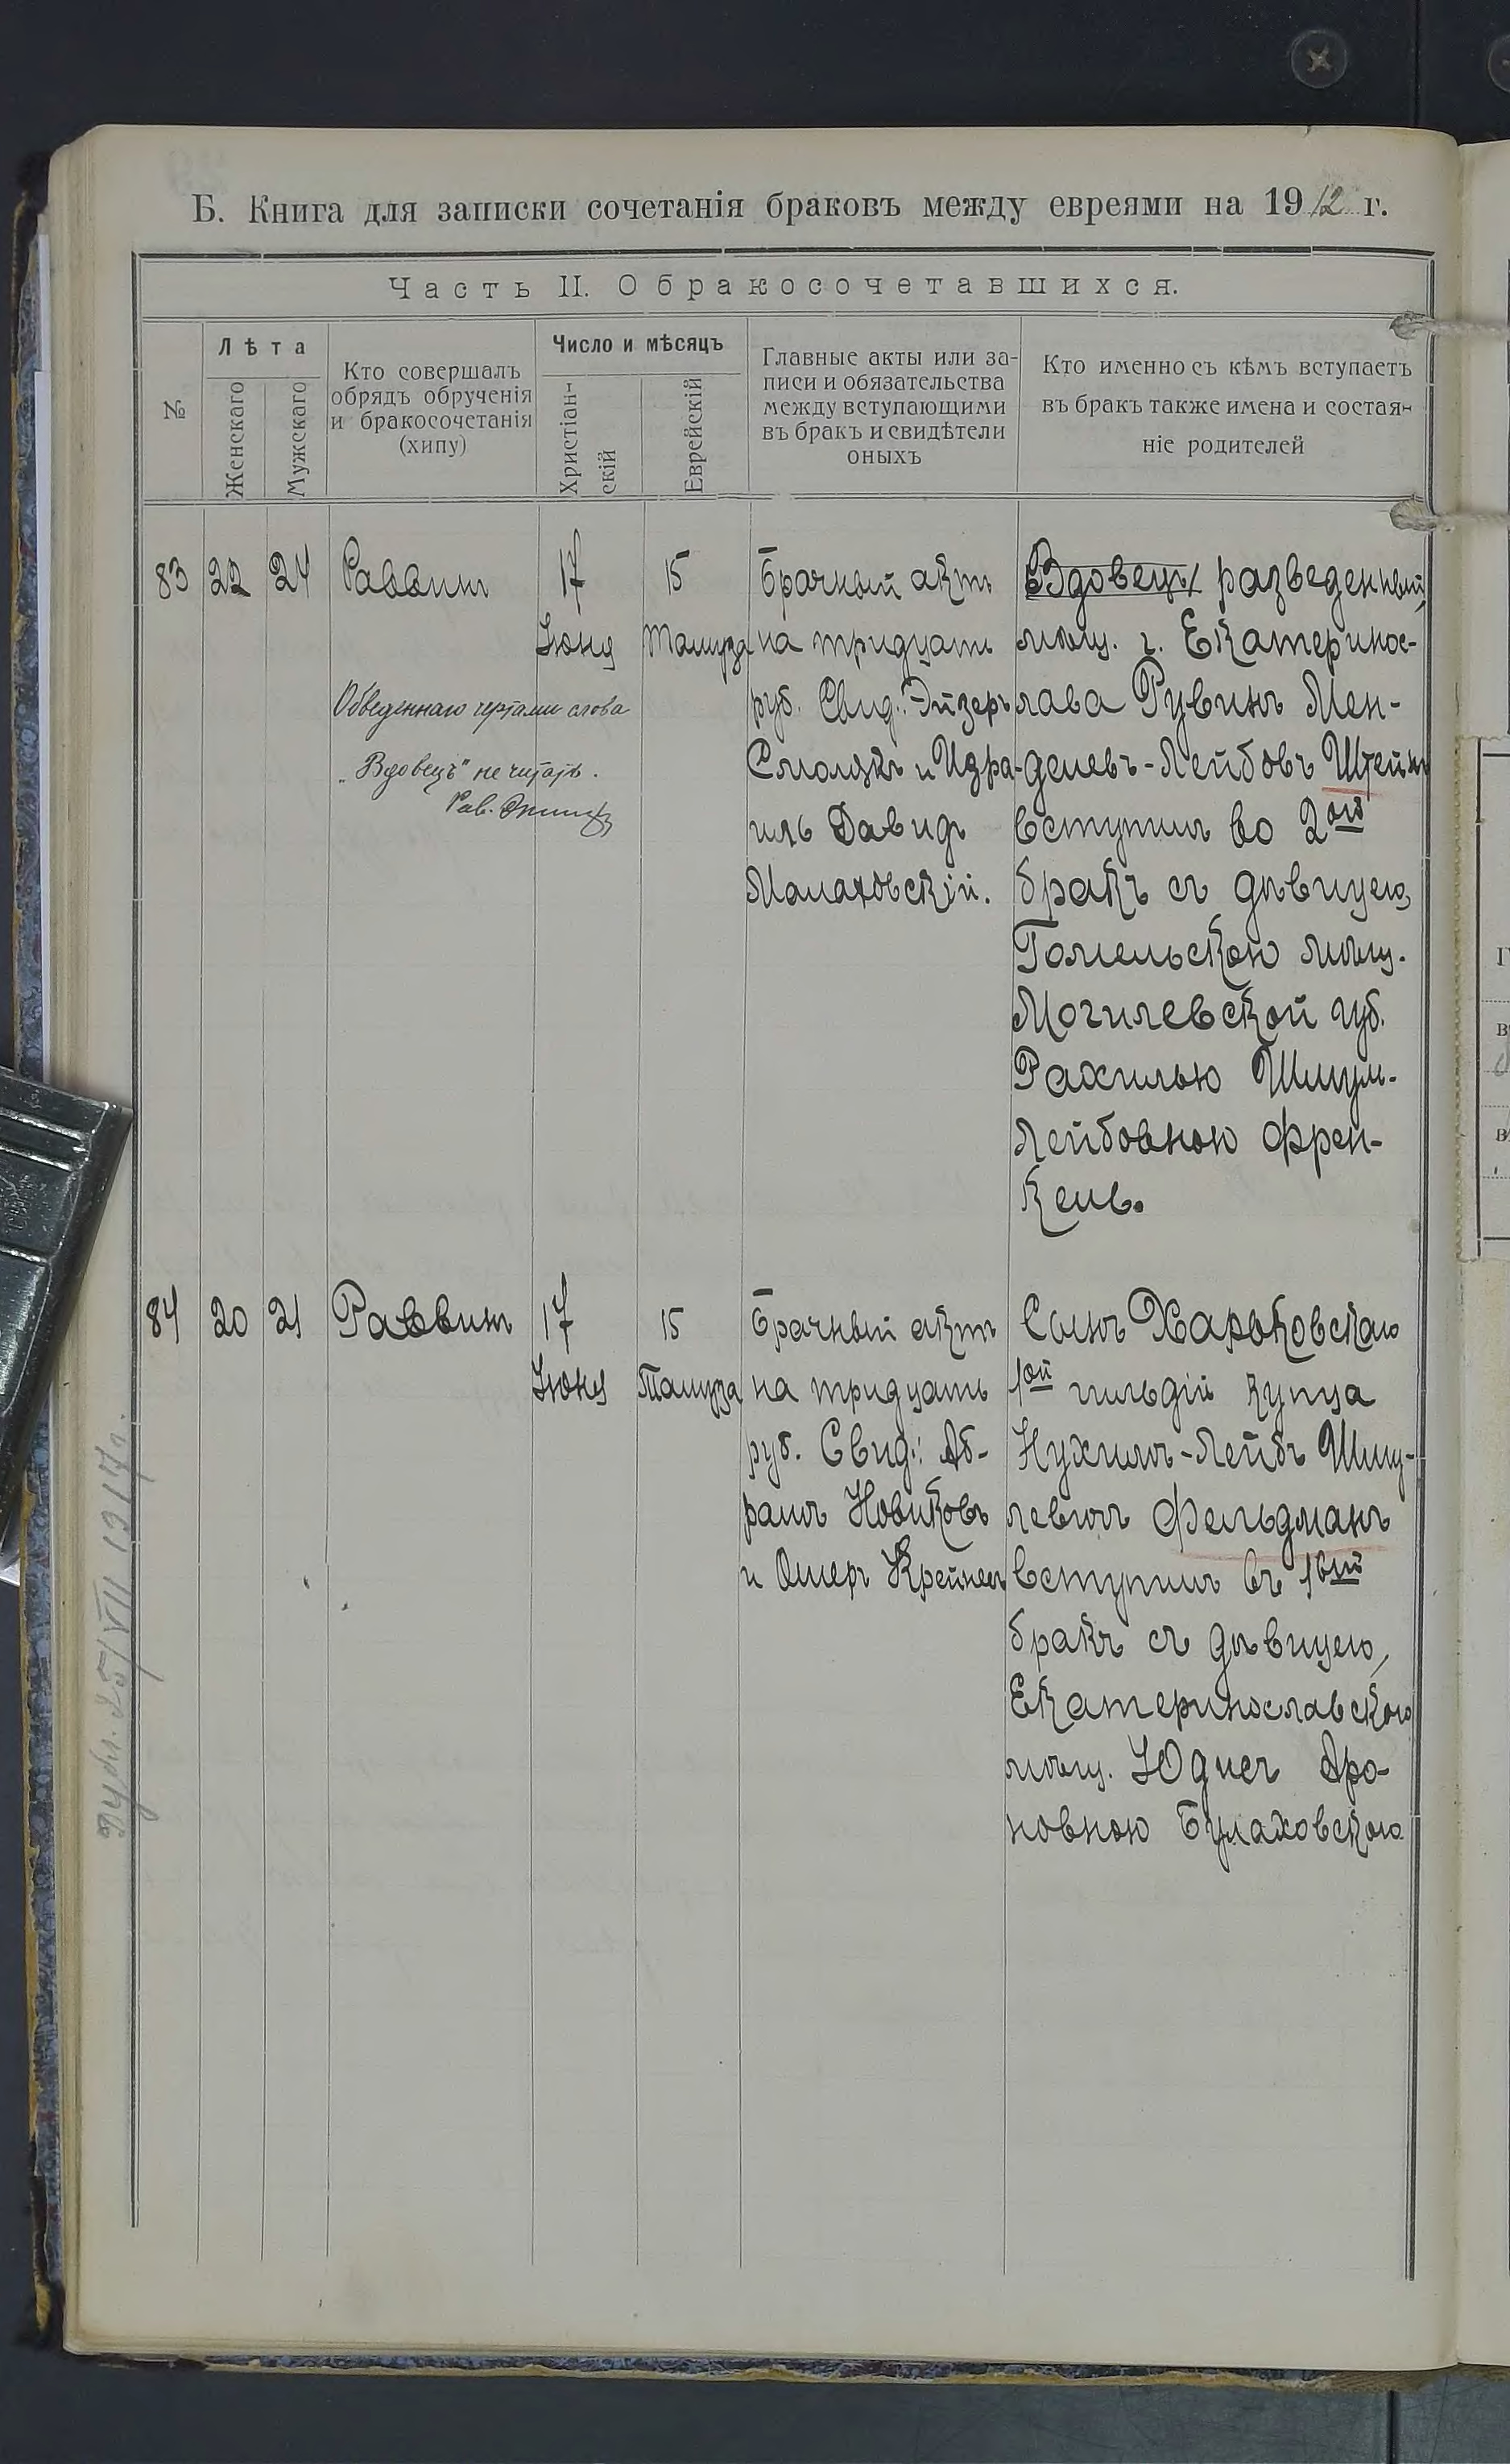 Б. Книга для записки сочетанія браковъ между евреями на 1912 г.
Часть II. О бракосочетавшихся.
№
Лѣта
Женскаго
Мужскаго
Кто совершалъ
обрядъ обрученія
и бракосочетанія
(хипу)
Число и мѣсяцъ
Христіан-
скій
Еврейскій
Главные акты или за-
писи и обязательства
между вступающими
въ бракъ и свидѣтели
оныхъ
Кто именно съ кѣмъ вступаетъ
въ бракъ также имена и состоя-
ніе родителей
83
22
24
Раввинъ
Обведеннаго чертами слова
„Вдовецъ" не читать.
Рав.
17
Іюня
15
Тамуза
Брачный актъ
на тридцать
руб. Свид.: Эйзеръ
Смолякъ и Изра-
иль Давидъ
Малаховскій.
Вдовецъ разведенный,
мѣщ. г. Екатеринос-
лава Рувинъ Мен-
делевъ-Лейбовъ Штейнъ
вступилъ во 2ой
бракъ съ дѣвицею,
Гомельскою мѣщ.
Могилевской губ.
Рахилью Шмул-
Лейбовною Френ-
кель.
84
20
21
Раввинъ
17
Іюня
15
Тамуза
Брачный актъ
на тридцать
руб. Свид.: Аб-
рамъ Новиковъ
и Ошеръ
Сынъ Харьковскаго
1ой гильдіи купца
Нухимъ-Лейбъ Шму-
левичъ Фельдманъ
вступилъ въ 1вый
бракъ съ дѣвицею,
Екатеринославскою
мѣщ. Юдисъ Аро-
новною Булаховскою
25/VII 1917г.